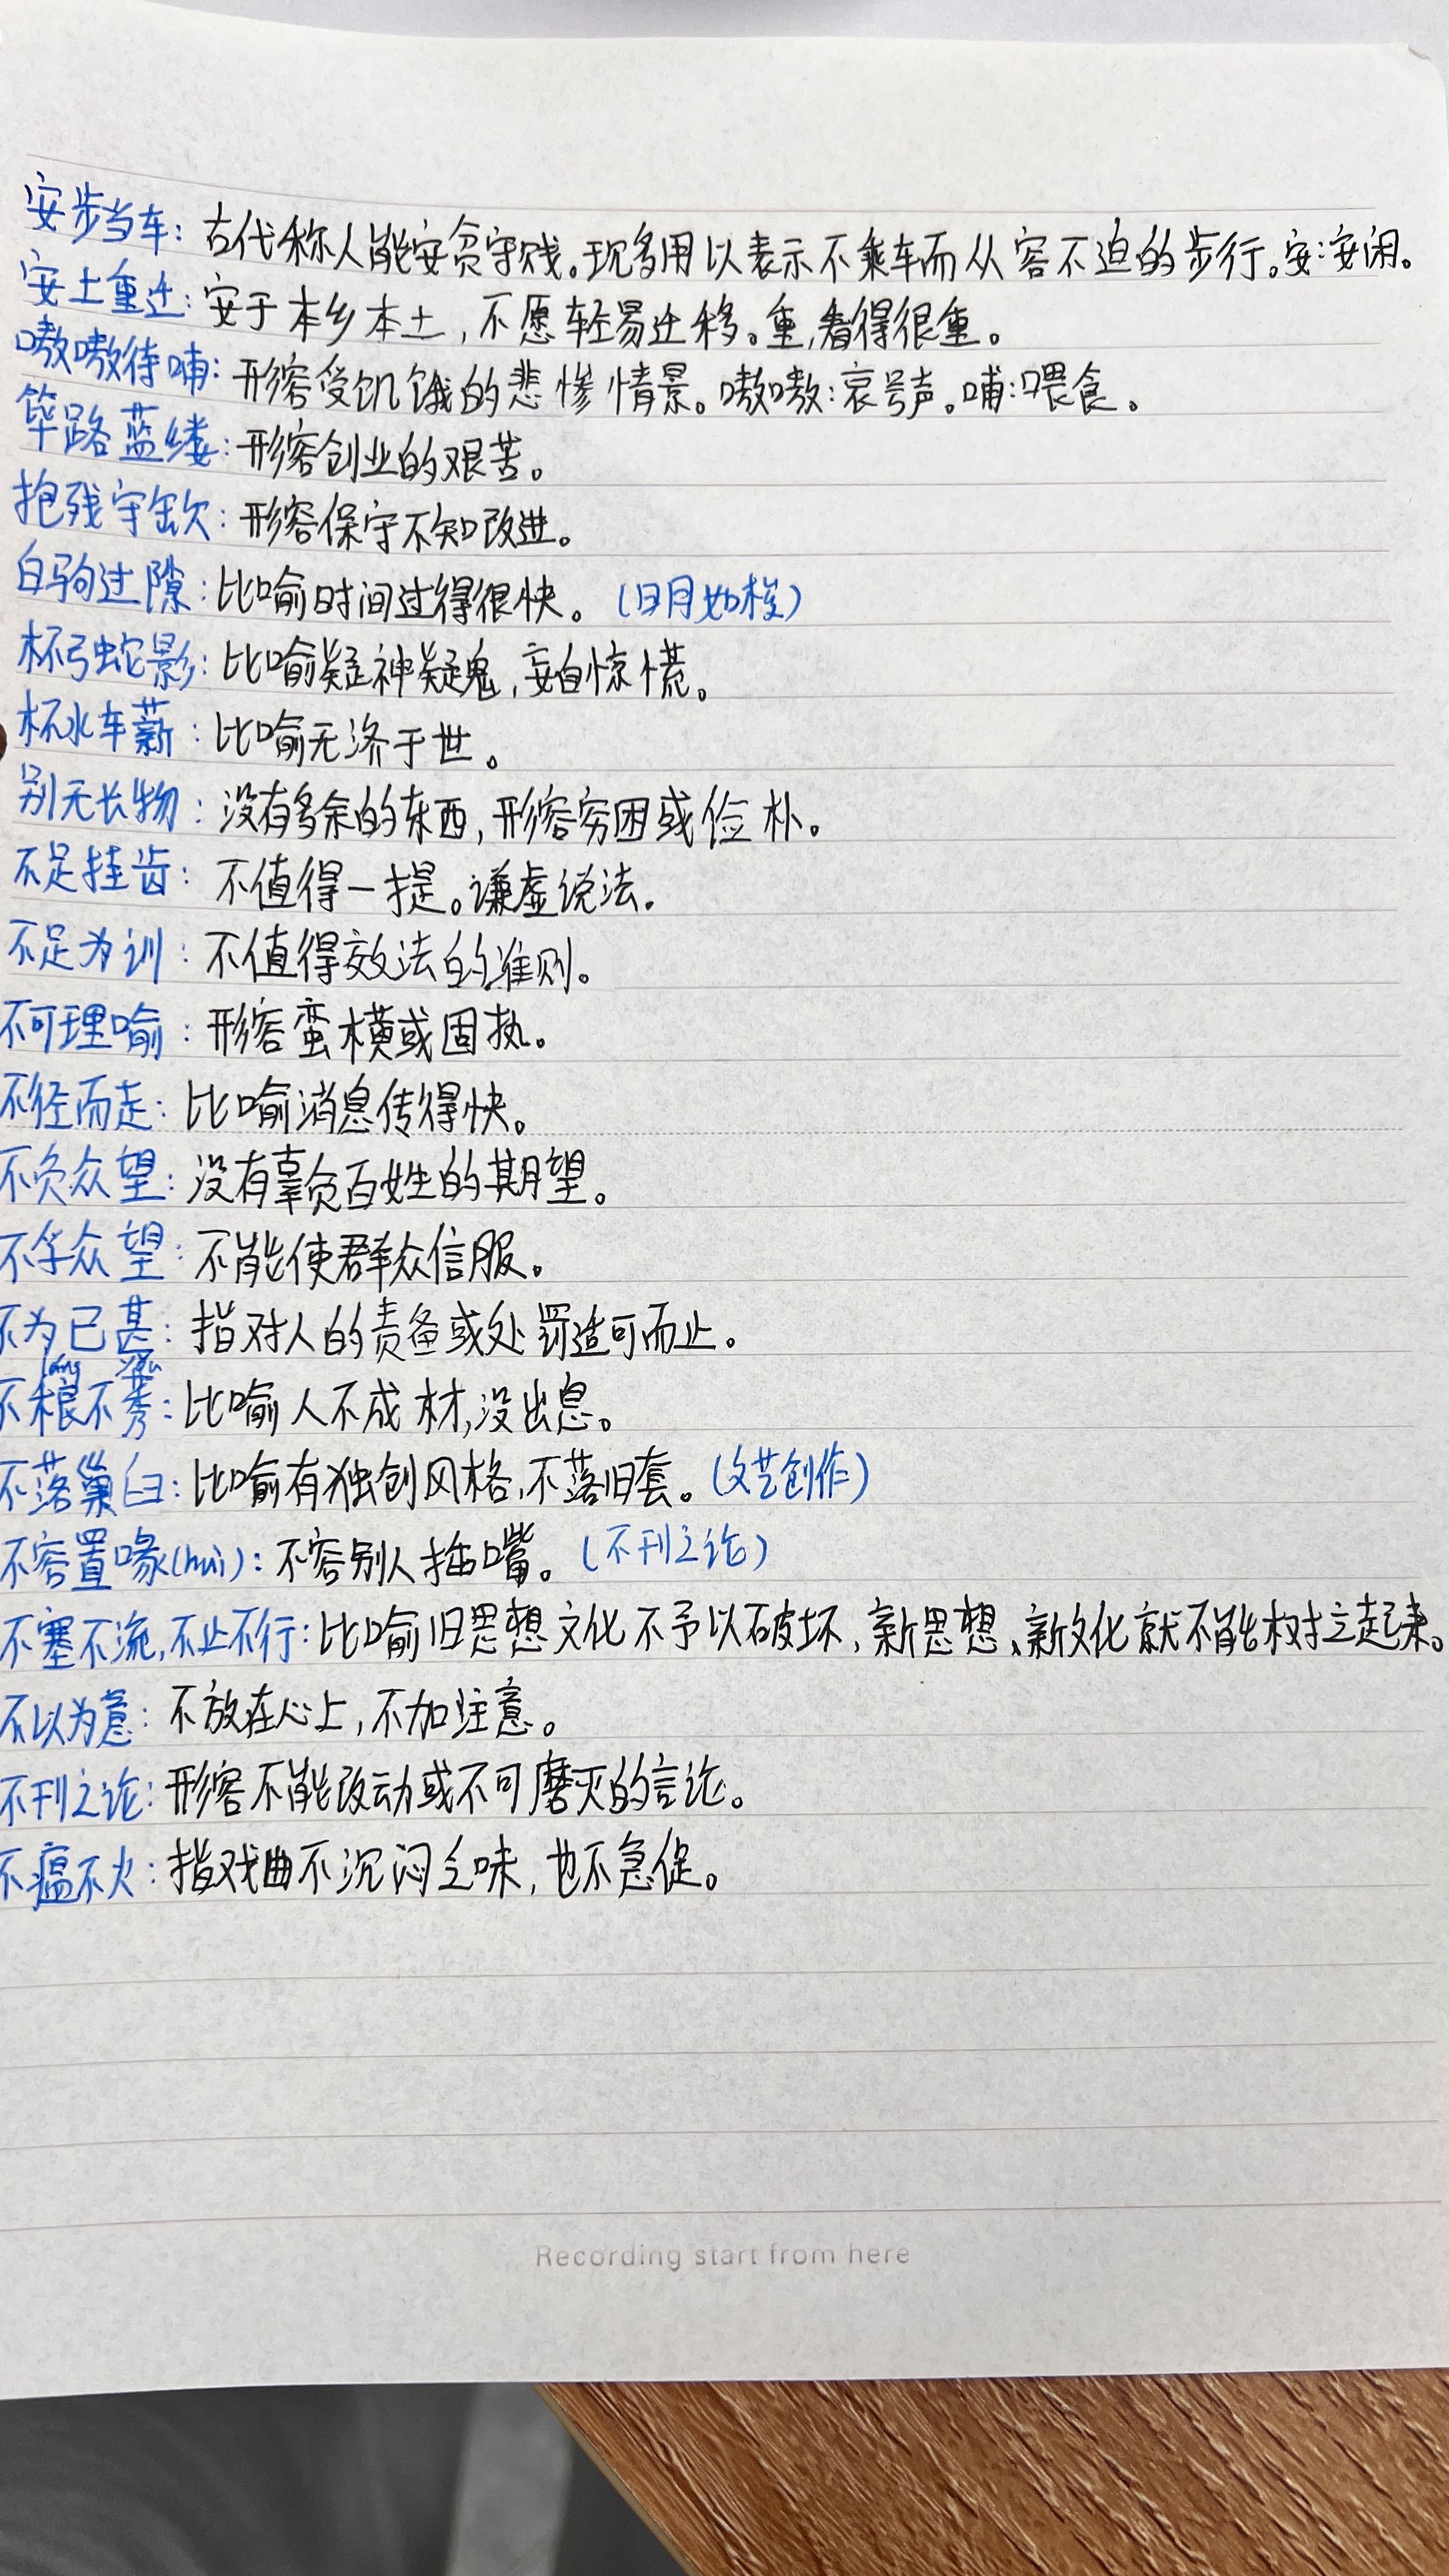 安步当车：古代称人能安贫守贱。现多用以表示不乘车而从容不迫的步行。安：安闲。
安土重迁：安于本乡本土，不愿轻易迁移。重，看得很重。
嗷嗷待哺：形容受饥饿的悲惨情景。嗷嗷：哀号声。哺：喂食。
筚路蓝缕：形容创业的艰苦。
抱残守缺：形容保守不知改进。
白驹过隙：比喻时间过得很快。（日月如梭）
杯弓蛇影：比喻疑神疑鬼，妄自惊慌。
杯水车薪：比喻无济于世。
别无长物：没有多余的东西，形容穷困或俭朴。
不足挂齿：不值得一提。谦虚说法.
不足为训：不值得效法的准则。
不可理喻：形容蛮横或固执。
不径而走：比喻消息传得快。
不负众望：没有辜负百姓的期望。
不孚众望：不能使群众信服。
不为已甚：指对人的责备或处罚适可而止。
láng yǒu
不稂不秀：比喻人不成材，没出息。
不落巢臼：比喻有独创风格，不落旧套。（文艺创作）
不容置喙(huì)：不容别人插嘴。（不刊之论）
不塞不流，不止不行：比喻旧思想文化不予以破坏，新思想、新文化就不能树立起来。
不以为意：不放在心上，不加注意。
不刊之论：形容不能改动或不可磨灭的言论。
不瘟不火：指戏曲不沉闷乏味，也不急促。
Recording start from here